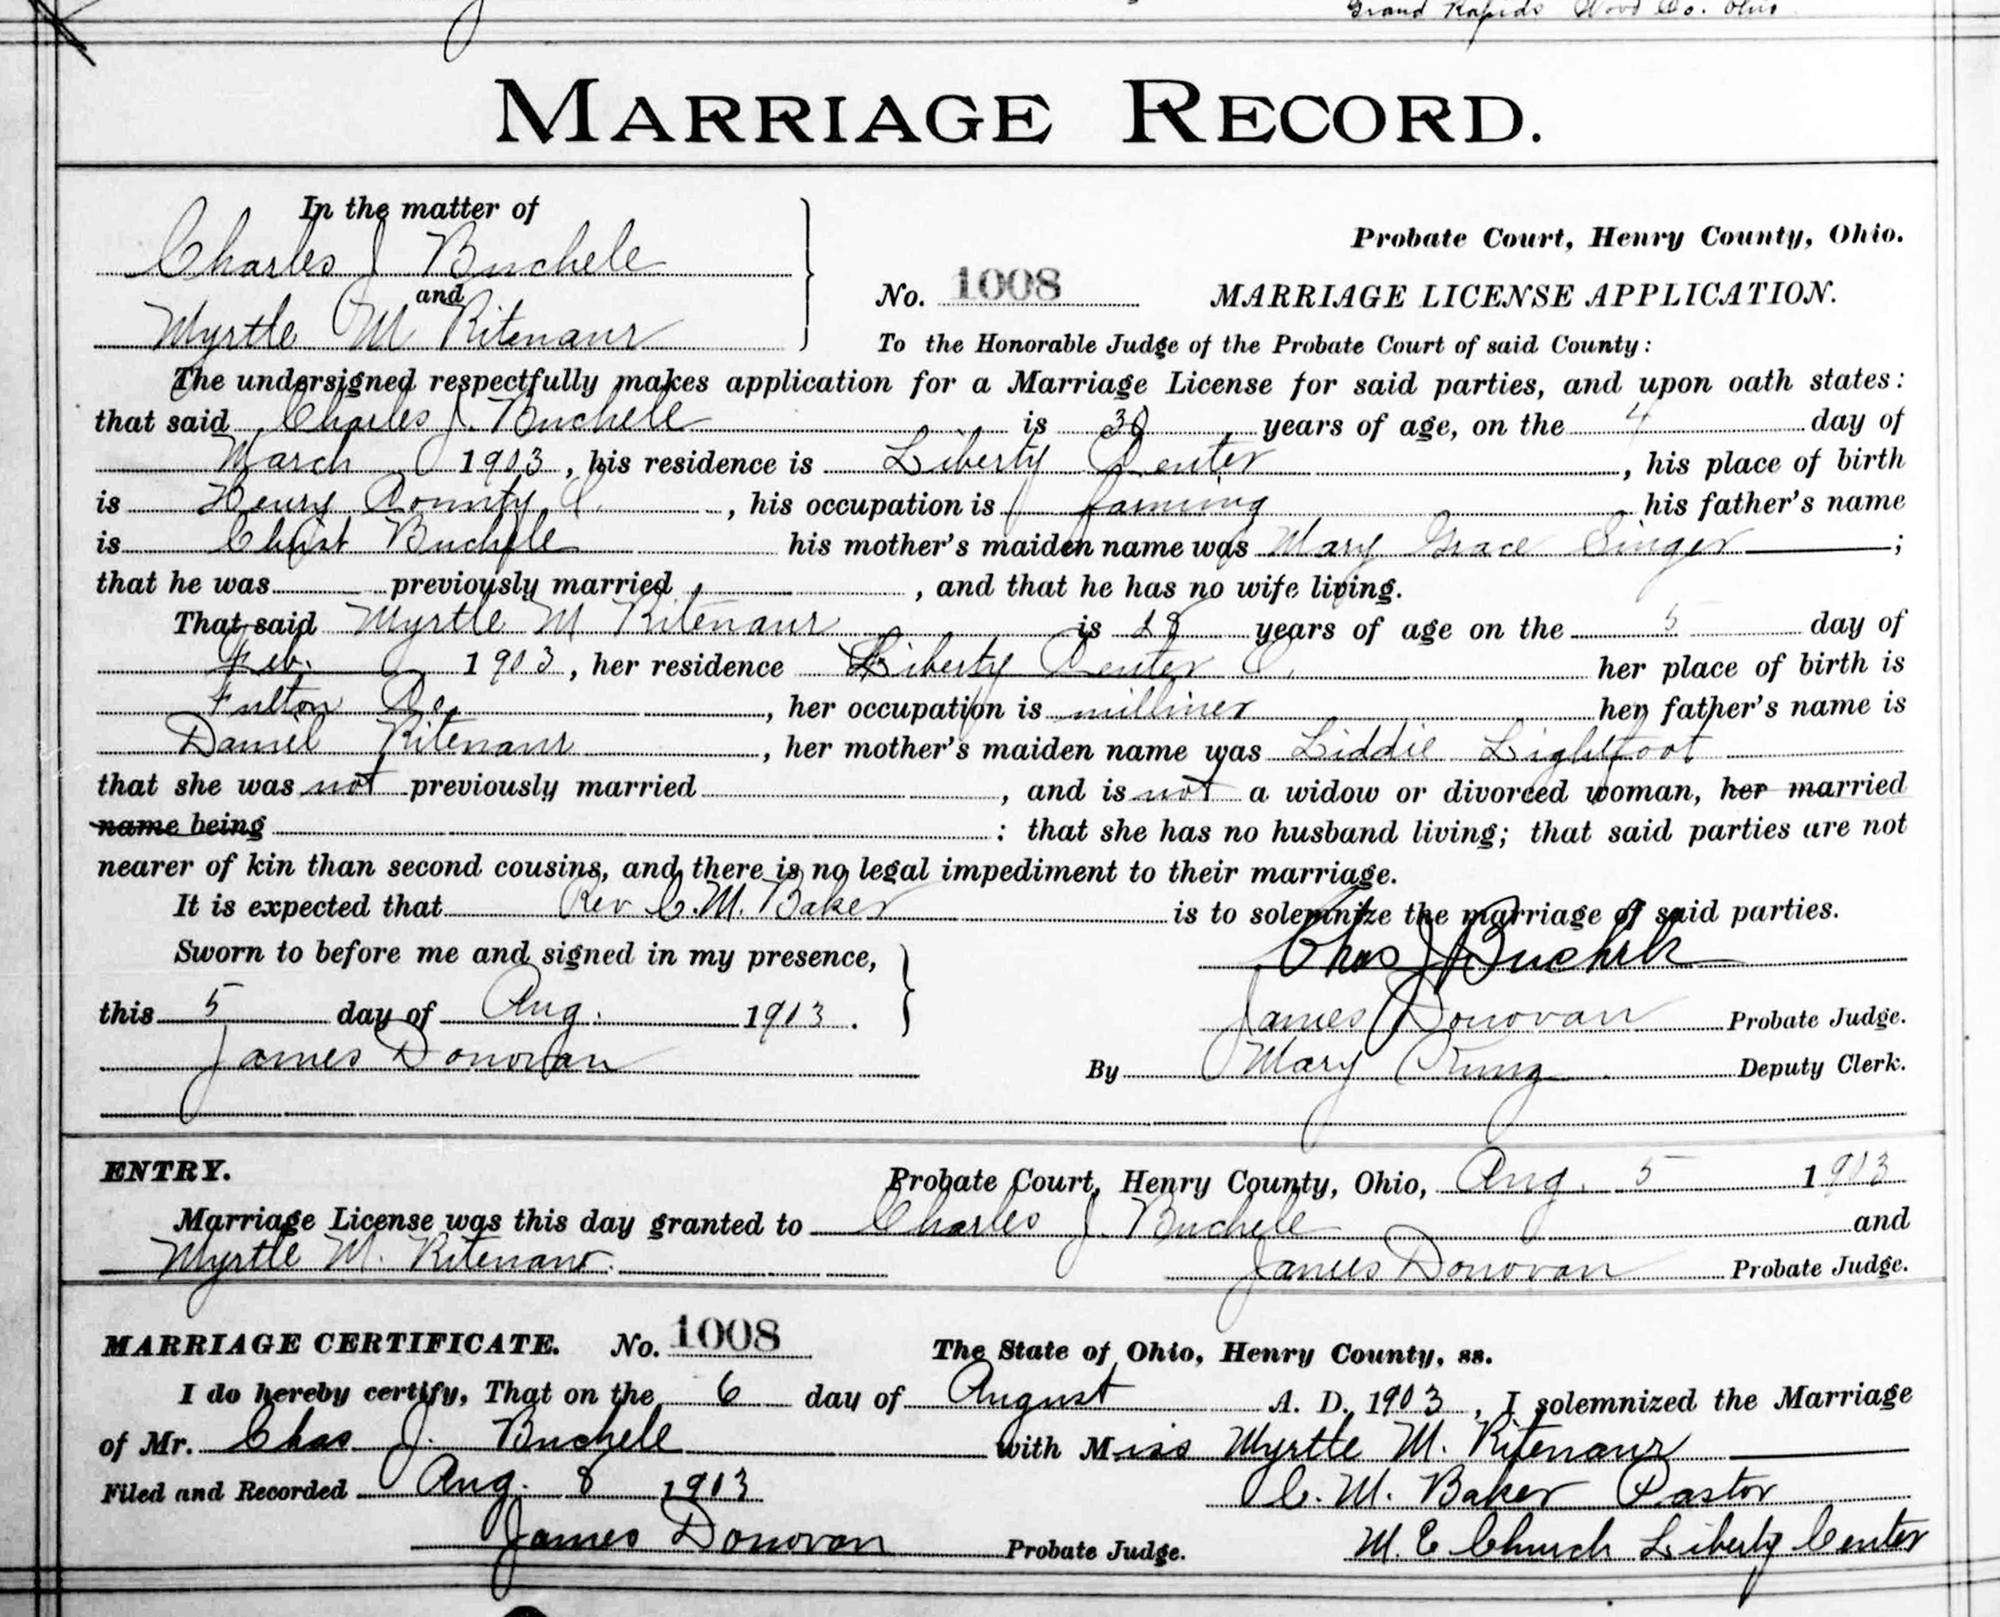 Grand Rapids Wood Co. Ohio
MARRIAGE RECORD.
In the matter of
Charles J Buchele
and
Myrtle M Ritenaur
Probate Court, Henry County, Ohio.
No. 1008 MARRIAGE LICENSE APPLICATION.
To the Honorable Judge of the Probate Court of said County:
The undersigned respectfully makes application for a Marriage License for said parties, and upon oath states:
that said Charles J. Buchele is 30 years of age, on the 4 day of
March 1903, his residence is Liberty Center, his place of birth
is Henry County O., his occupation is farming his father's name
is Christ Buchele his mother's maiden name was Mary Grace Singer;
that he was previously married, and that he has no wife living.
That said Myrtle M Ritenaur is 28 years of age on the 5 day of
Feb. 1903, her residence Liberty Center O. her place of birth is
Fulton Co., her occupation is milliner her father's name is
Daniel Ritenaur, her mother's maiden name was Liddie Lightfoot
that she was not previously married, and is not a widow or divorced woman, her married
name being : that she has no husband living; that said parties are not
nearer of kin than second cousins, and there is no legal impediment to their marriage.
It is expected that Rev C. M. Baker is to solemnize the marriage of said parties.
Sworn to before me and signed in my presence,
Chas J Buchele
this 5 day of Aug. 1903.
James Donovan Probate Judge.
James Donovan
By Mary Deputy Clerk.
ENTRY. Probate Court, Henry County, Ohio, Aug. 5 1903
Marriage License was this day granted to Charles J. Buchele and
Myrtle M. Ritenaur. James Donovan Probate Judge.
MARRIAGE CERTIFICATE. No. 1008 The State of Ohio, Henry County, ss.
I do hereby certify, That on the 6 day of August A. D. 1903, I solemnized the Marriage
of Mr. Chas J. Buchele with Miss Myrtle M. Ritenaur
Filed and Recorded Aug. 8 1903 C. M. Baker Pastor
James Donovan Probate Judge. M. E Church Liberty Center